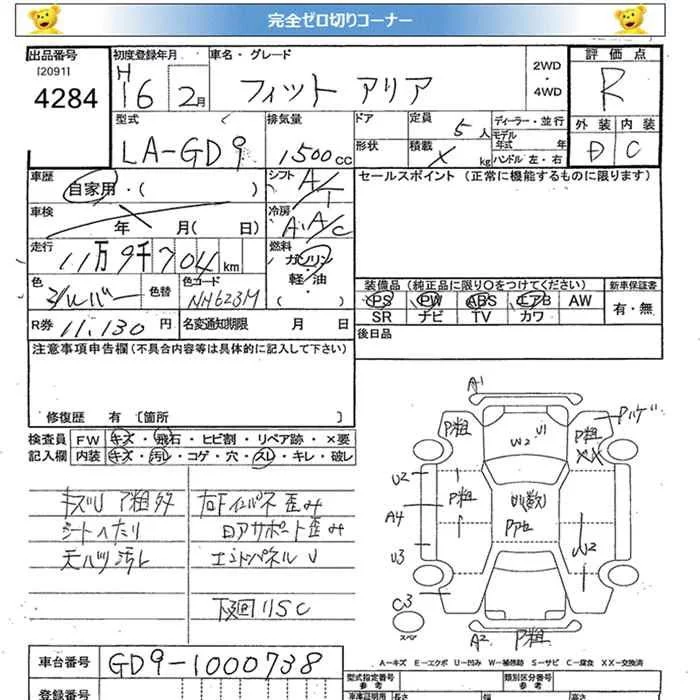 完全ゼロ切りコーナー
出品番号
120911
4284
初度登録年月
H16 2月
車名・グレード
フィット アリア
2WD
・
4WD
評価点
R
外装 内装
D C
型式
LA-GD9
排気量
1500cc
ドア
形状
定員
5人
積載
X kg
ディーラー・並行
モデル
年式 年
ハンドル 左・右
車歴
自家用・( )
車検
年 月( 日)
走行
11万9千704km
色
シルバー
色替
色コード
NH623M
シフト
A/T
冷房
A.A/C
燃料
ガソリン
軽・油
( )
セールスポイント(正常に機能するものに限ります)
装備品(純正品に限り○をつけてください)
PS PW ABS エアB AW
SR ナビ TV カワ
新車保証書
有・無
R券 11,130円
名変通知期限 月 日
後日品
注意事項申告欄(不具合内容等は具体的に記入して下さい)
修復歴 有 [箇所 ]
検査員
記入欄
FW キズ・飛石・ヒビ割・リペア跡・×要
内装 キズ・汚レ・コゲ・穴・スレ・キレ・破レ
キズU P粗多
シートヘたり
天バリ汚レ
右Fインパネ歪み
コアサポート歪み
エンドパネルU
下廻りSC
A1
P粗
W2
U1
P粗
XX
Pハゲ
U2
P粗
A4
U3
C3
スペア
A2
P粗
W2
A-キズ E-エクボ U-凹み W-補修跡 S-サビ C-腐食 XX-交換済
車台番号
GD9-1000738
登録番号
型式指定番号
参考
類別区分番号
参考
車庫証明用
長さ
幅
高さ